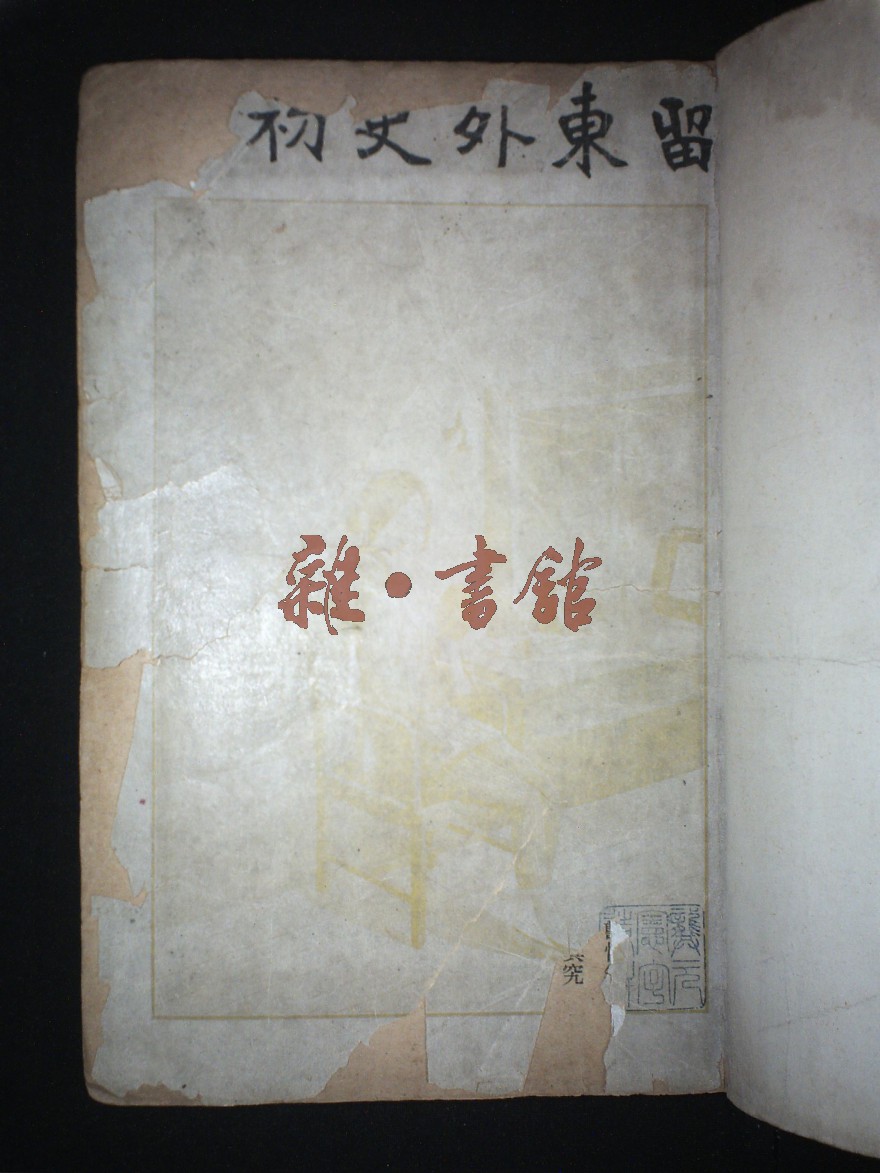 留東外史初
雜·書館
究